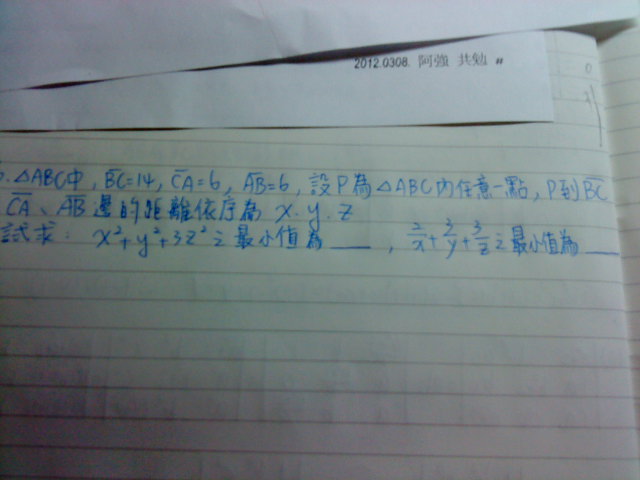 2012.0308. 阿強 共勉 #
△ABC中, BC=14, CA=6, AB=6, 設P為△ABC內任意一點, P到BC
CA、AB邊的距離依序為 x.y.z
試求: x²+y²+3z²之最小值為____, 2/x+3/y+3/z之最小值為____